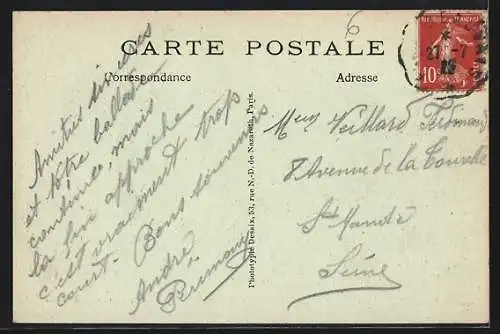 6
CARTE POSTALE
Correspondance
Adresse
Amitiés sincères
et Notre ballade
continue, mais
la fin approche
c'est vraiment trop
court. Bons souvenirs
André
Phototypie Desaix, 53, rue N.-D. de Nazareth, Paris.
Veillard
8 Avenue de la Tourelle
St Mandé
Seine
10